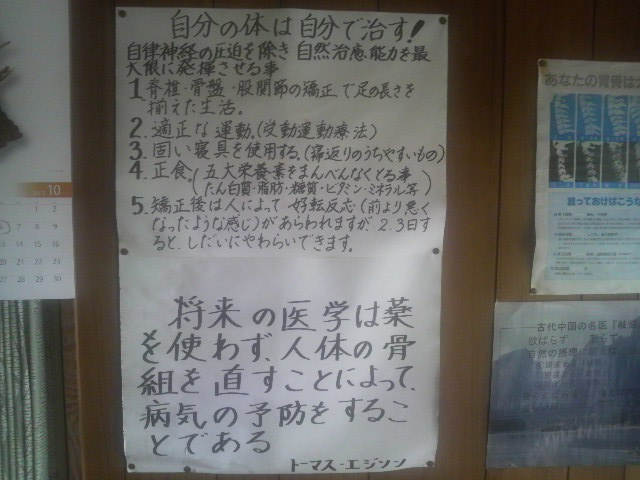 自分の体は自分で治す!
自律神経の圧迫を除き自然治癒能力を最
大限に発揮させる事
1 脊椎・骨盤・股関節の矯正で足の長さを
揃えた生活。
2. 適正な運動、(受動運動療法)
3. 固い寝具を使用する。(寝返りのうちやすいもの)
4. 正食、(五大栄養素をまんべんなくとる事
たん白質・脂肪・糖質・ビタミン・ミネラル等)
5. 矯正後は人によって好転反応(前より悪く
なったような感じ)があらわれますが2.3日す
ると、しだいにやわらいできます。
将来の医学は薬
を使わず、人体の骨
組を直すことによって、
病気の予防をするこ
とである
トーマス・エジソン
10
1 2
8 9
15 16
22 23
29 30
あなたの背骨は
放っておけばこうな
古代中国の名医
欲ばらず
自然の摂理